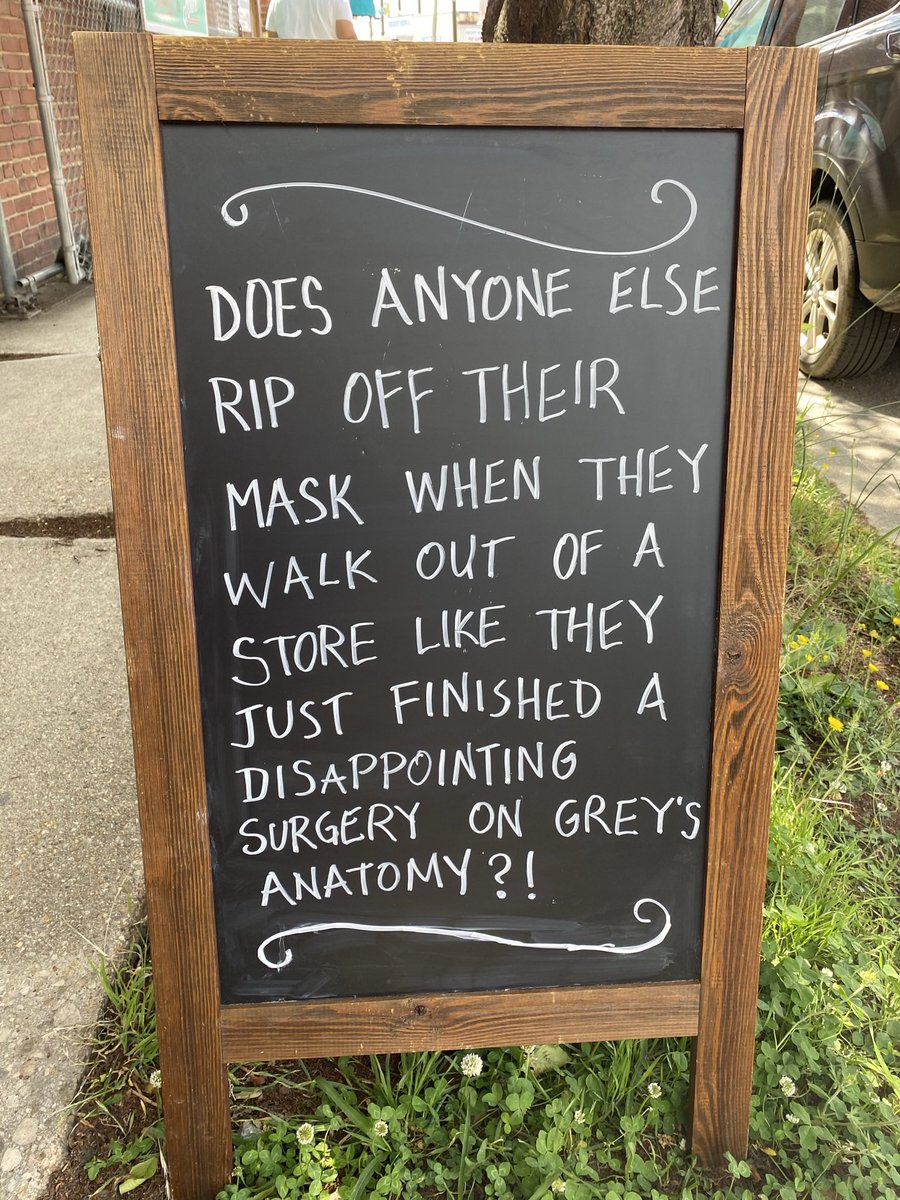 DOES ANYONE ELSE
RIP OFF THEIR
MASK WHEN THEY
WALK OUT OF A
STORE LIKE THEY
JUST FINISHED A
DISAPPOINTING
SURGERY ON GREY'S
ANATOMY?!